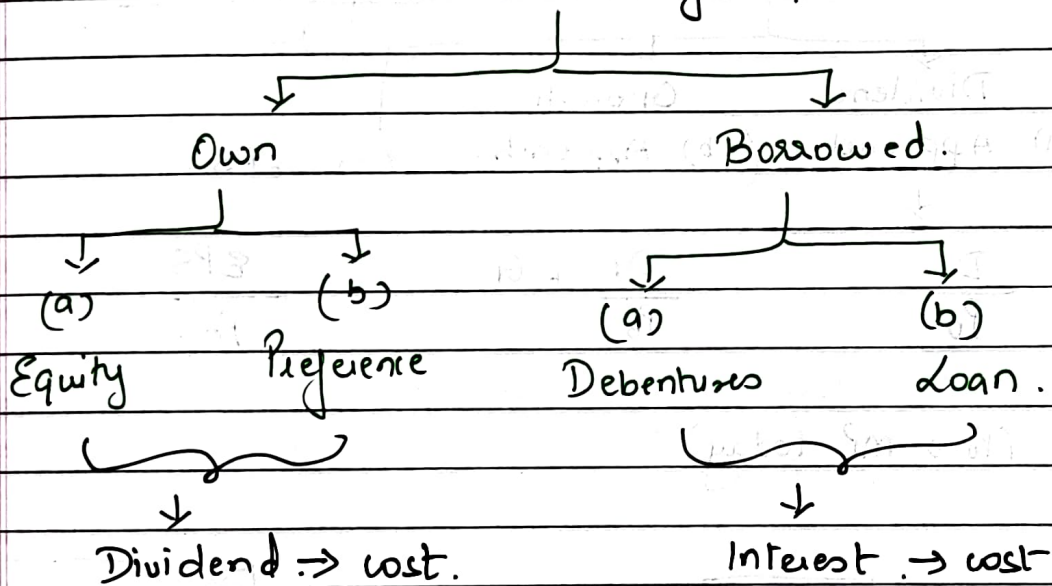 Own Borrowed.
(a) (b) (a) (b)
Equity Preference Debentures Loan.
Dividend → cost. Interest → cost